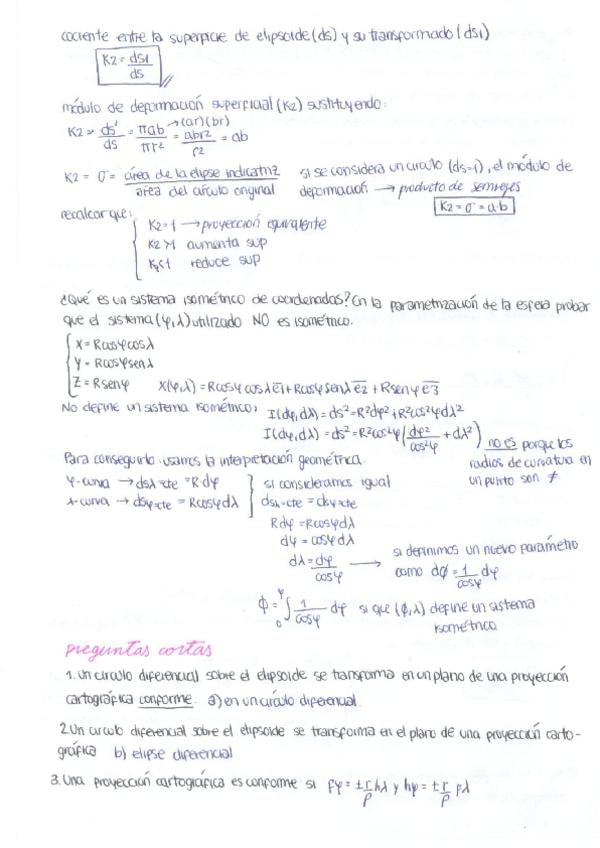 cociente entre la superficie de elipsoide (ds) y su transformado (ds1)
K2 = ds1/ds
módulo de deformación superficial (K2) sustituyendo:
K2 = ds'/ds = πab/πr² → (ar)(br) = abr²/r² = ab
K2 = σ = área de la elipse indicatriz / área del círculo original si se considera un círculo (ds=1), el módulo de
deformación → producto de semiejes
K2 = σ = a·b
recalcar que:
K2 = 1 → proyección equivalente
K2 > 1 aumenta sup
K2 < 1 reduce sup
¿Qué es un sistema isométrico de coordenadas? En la parametrización de la esfera probar
que el sistema (φ,λ) utilizado NO es isométrico.
X = Rcosφcosλ
Y = Rcosφsenλ
Z = Rsenφ X(φ,λ) = Rcosφ cosλ e1 + Rcosφ senλ e2 + Rsenφ e3
No define un sistema isométrico: I(dφ,dλ) = ds² = R²dφ² + R²cos²φdλ²
I(dφ,dλ) = ds² = R²cos²φ(dφ²/cos²φ + dλ²) no es porque los
radios de curvatura en
un punto son ≠
Para conseguirlo usamos la interpretación geométrica.
φ-curva → dsλ=cte = Rdφ
λ-curva → dsφ=cte = Rcosφdλ
si consideramos igual
dsλ=cte = dsφ=cte
Rdφ = Rcosφdλ
dφ = cosφdλ
dλ = dφ/cosφ → si definimos un nuevo parámetro
como dϕ = 1/cosφ dφ
ϕ = ∫₀^φ 1/cosφ dφ si que (ϕ,λ) define un sistema
isométrico
preguntas cortas
1. Un círculo diferencial sobre el elipsoide se transforma en un plano de una proyección
cartográfica conforme a) en un círculo diferencial.
2. Un círculo diferencial sobre el elipsoide se transforma en el plano de una proyección carto-
gráfica b) elipse diferencial
3. Una proyección cartográfica es conforme si fφ = ± r/ρ hλ y hφ = ± r/ρ fλ